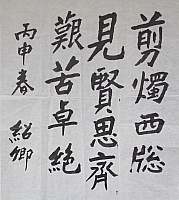 剪燭西牕
見賢思齊
艱苦卓絶
丙申春 紹卿